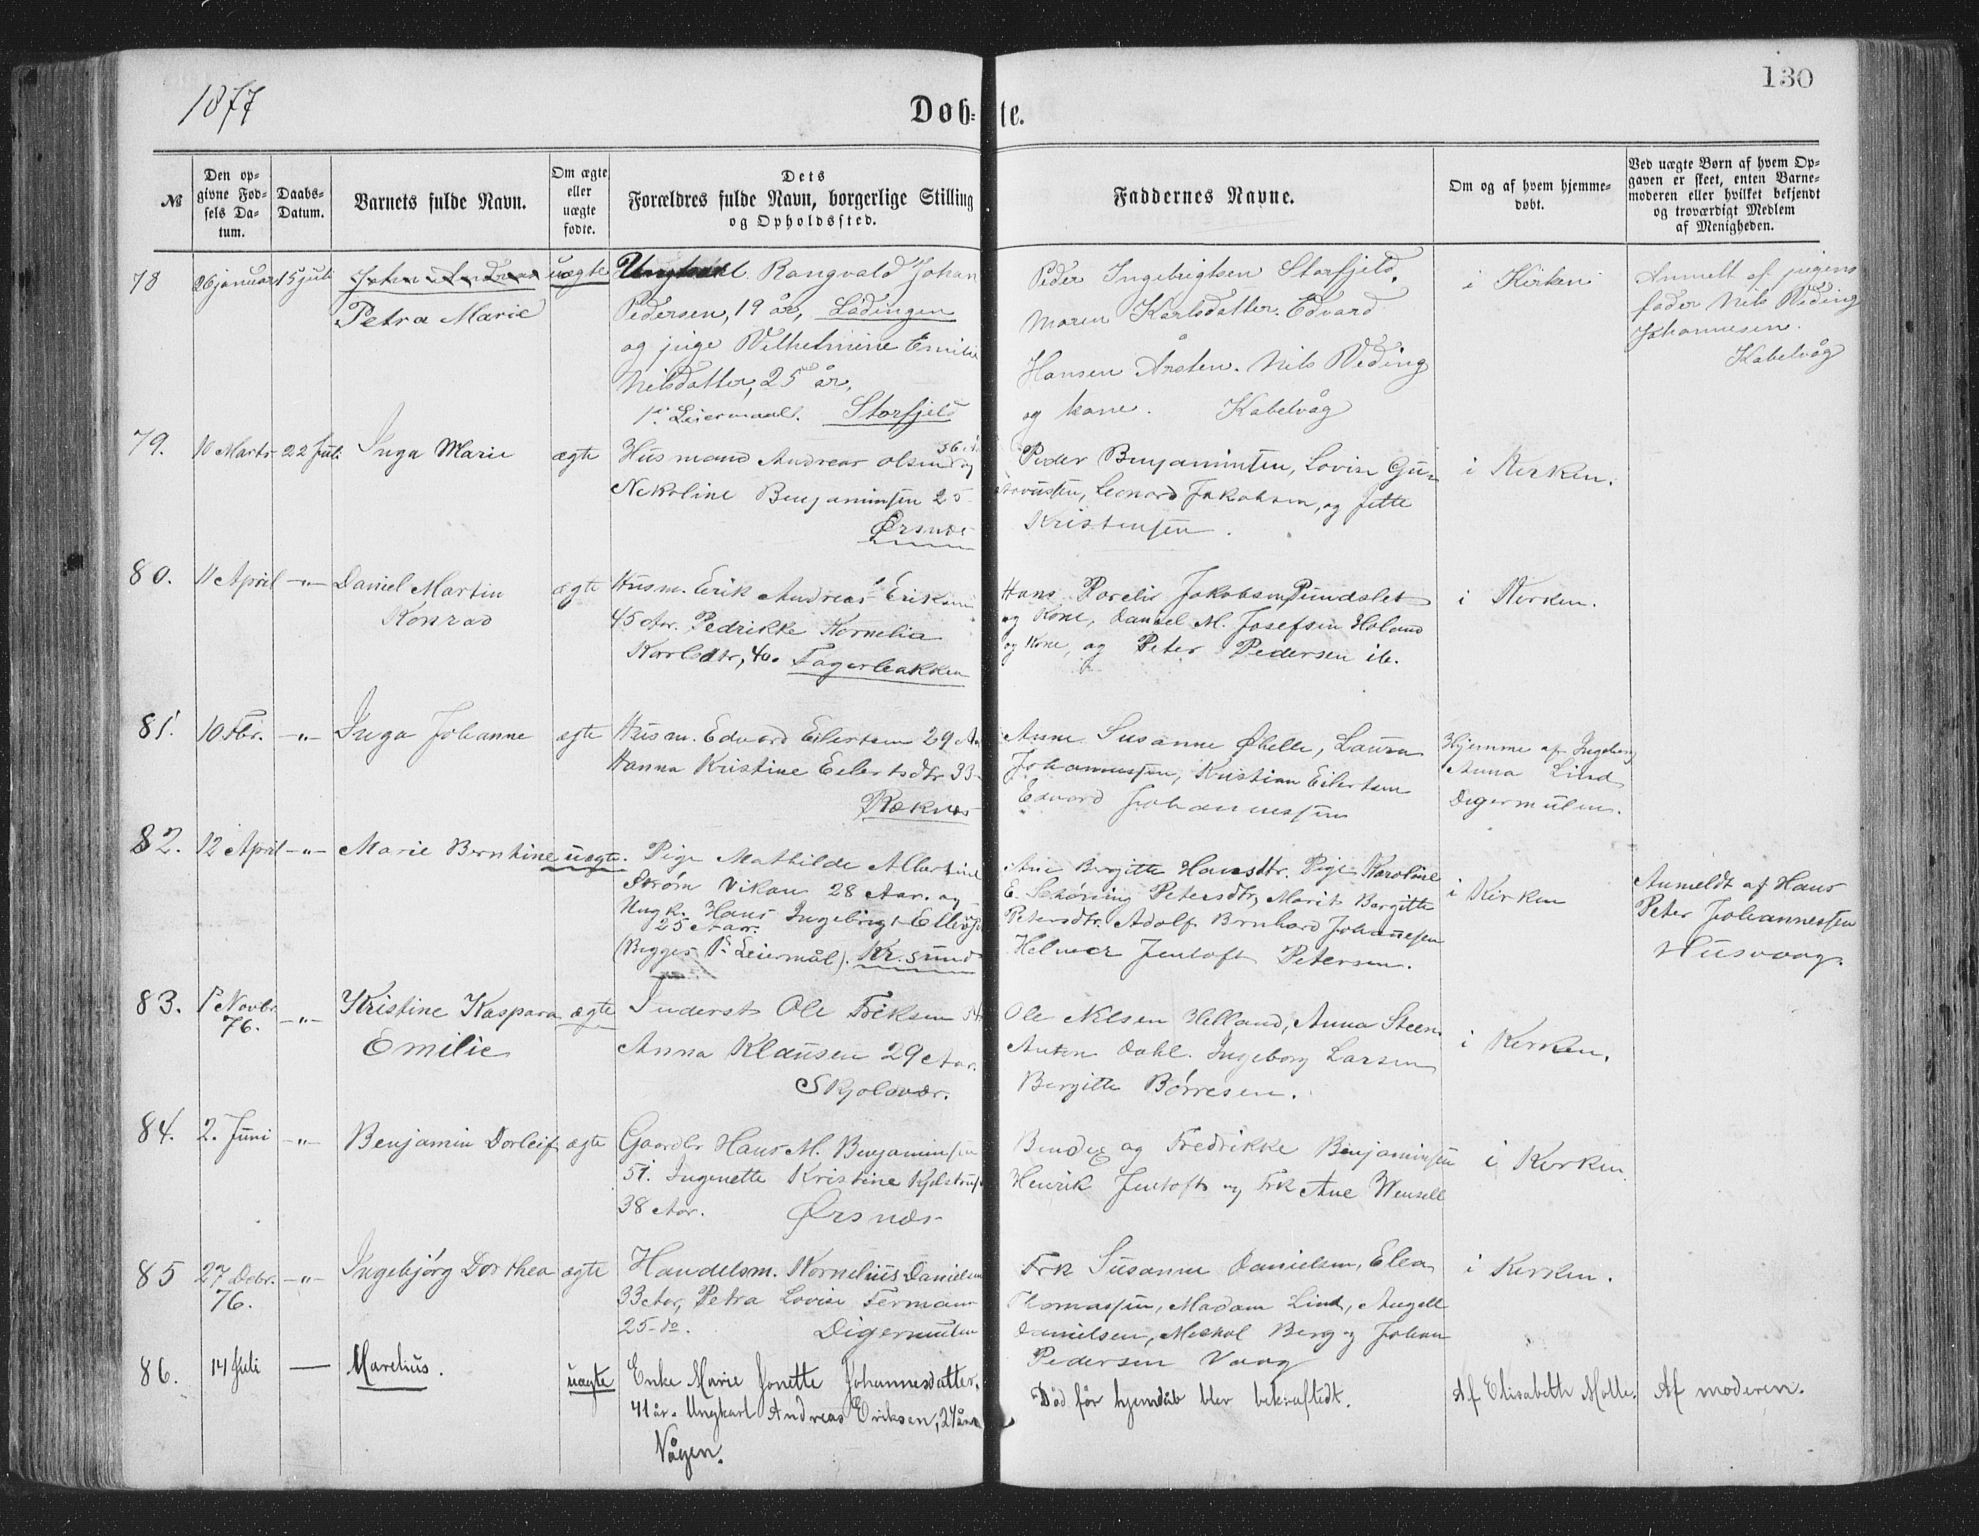 1877
Døb-te.
130
№
Den opgivne Fødsels Datum.
Daabs-Datum.
Barnets fulde Navn.
Om ægte eller uægte fødte.
Dets Forældres fulde Navn, borgerlige Stilling og Opholdssted.
Faddernes Navne.
Om og af hvem hjemmedøbt.
Ved uægte Børn af hvem Opgaven er skeet, enten Barnemoderen eller hvilket bekjendt og troværdigt Medlem af Menigheden.
78
26 januar
15 juli
Petra Marie
uægte
Ungkarl Rangvald Johan
Pedersen, 19 år, Lødingen
og pige Vilhelmine Emilie
Nilsdatter, 25 år,
1ste Leiermaal. Storfjeld
Peder Ingebrigtsen Storfjeld.
Maren Karlsdatter. Edvard
Hansen Årsten. Nils Weding
og kone. Kabelvåg
i Kirken
Anmelt af pigens
fader Nils Weding
Johannesen.
Kabelvåg
79.
10 Marts
22 Juli
Inga Marie
ægte
Husmand Andreas Olsen 36 og
Nekoline Benjaminsen 25
Ørsnes
Peder Benjaminsen, Lovise Gustavussen, Leonard Jakobsen, og Jette
Kristensen.
i Kirken.
80.
11 April
-"-
Daniel Martin
Konrad
ægte
Husm. Erik Andreas Eriksen
45 Aar. Pedrikke Kornelia
Karlsdtr, 40. Fagerbakken
Hans Jakobsen Pundslet
og Kone, Daniel M. Josefsen Holand
og Kone, og Peter Pedersen ib.
i Kirken.
81.
10 Fbr.
-"-
Inga Johanne
ægte
Husm. Edvard Eilertsen 29 Aar
Hanna Kristine Eilertsdtr 33
Ræknes
Anne Susanne Øhelle, Laura
Johannessen, Kristian Eilertsen
Edvard Johannessen
Hjemme af Ingeborg
Anna Lind
Digermulen.
82.
12 April
-"-
Marie Berntine
uægte.
Pige Mathilde Albertine
Strøm Vikan 28 Aar. og
Ungk. Hans Ingebrigt Ellevs
25 Aar.
(Begges 1ste Leiermål). Kr.sund
Ane Bergitte Hansdtr. Pige Karoline
E. Schøning Petersdtr, Marit Bergitte
Petersdtr. Adolf Bernhard Johannesen
Helmer Jentoft Petersen.
i Kirken
Anmeldt af Hans
Peter Johannessen
Husvaag.
83.
1ste Novbr
76.
-"-
Kristine Kaspara
Emilie
ægte
Inderst Ole Eriksen
Anna Klausen 29 Aar.
Skjolvær.
Ole Nilsen Helland, Anna Steen.
Anton Dahl. Ingeborg Larsen
Bergitte Børresen.
i Kirken.
84.
2. Juni
-"-
Benjamin Dorleif
ægte
Gaardbr Hans M. Benjaminsen
51. Ingenette Kristine Kjelstrup
38 Aar. Ørsnes
Bendix og Fredrikke Benjaminsen
Henrik Jentoft og Frk Ane Wensell
i Kirken.
85
27 Debr.
76.
-"-
Ingebjörg Dorthea
ægte
Handelsm. Kornelius Danielsen
33 Aar, Petra Lovise Fermann
25 do. Digermulen
Frk Susanne Danielsen, Elen
Thomassen, Madam Lind, Angell
Danielsen, Mekal Berg og Johan
Pedersen Vaag
i Kirken.
86.
14 Juli
—
Marelius.
uægte
Enke Marie Jonette Johannesdatter,
41 år. Ungkarl Andreas Eriksen, 24 år
Vågen.
Død før hjemdåb blev bekræftedt.
Af Elisabeth Molle.
Af moderen.